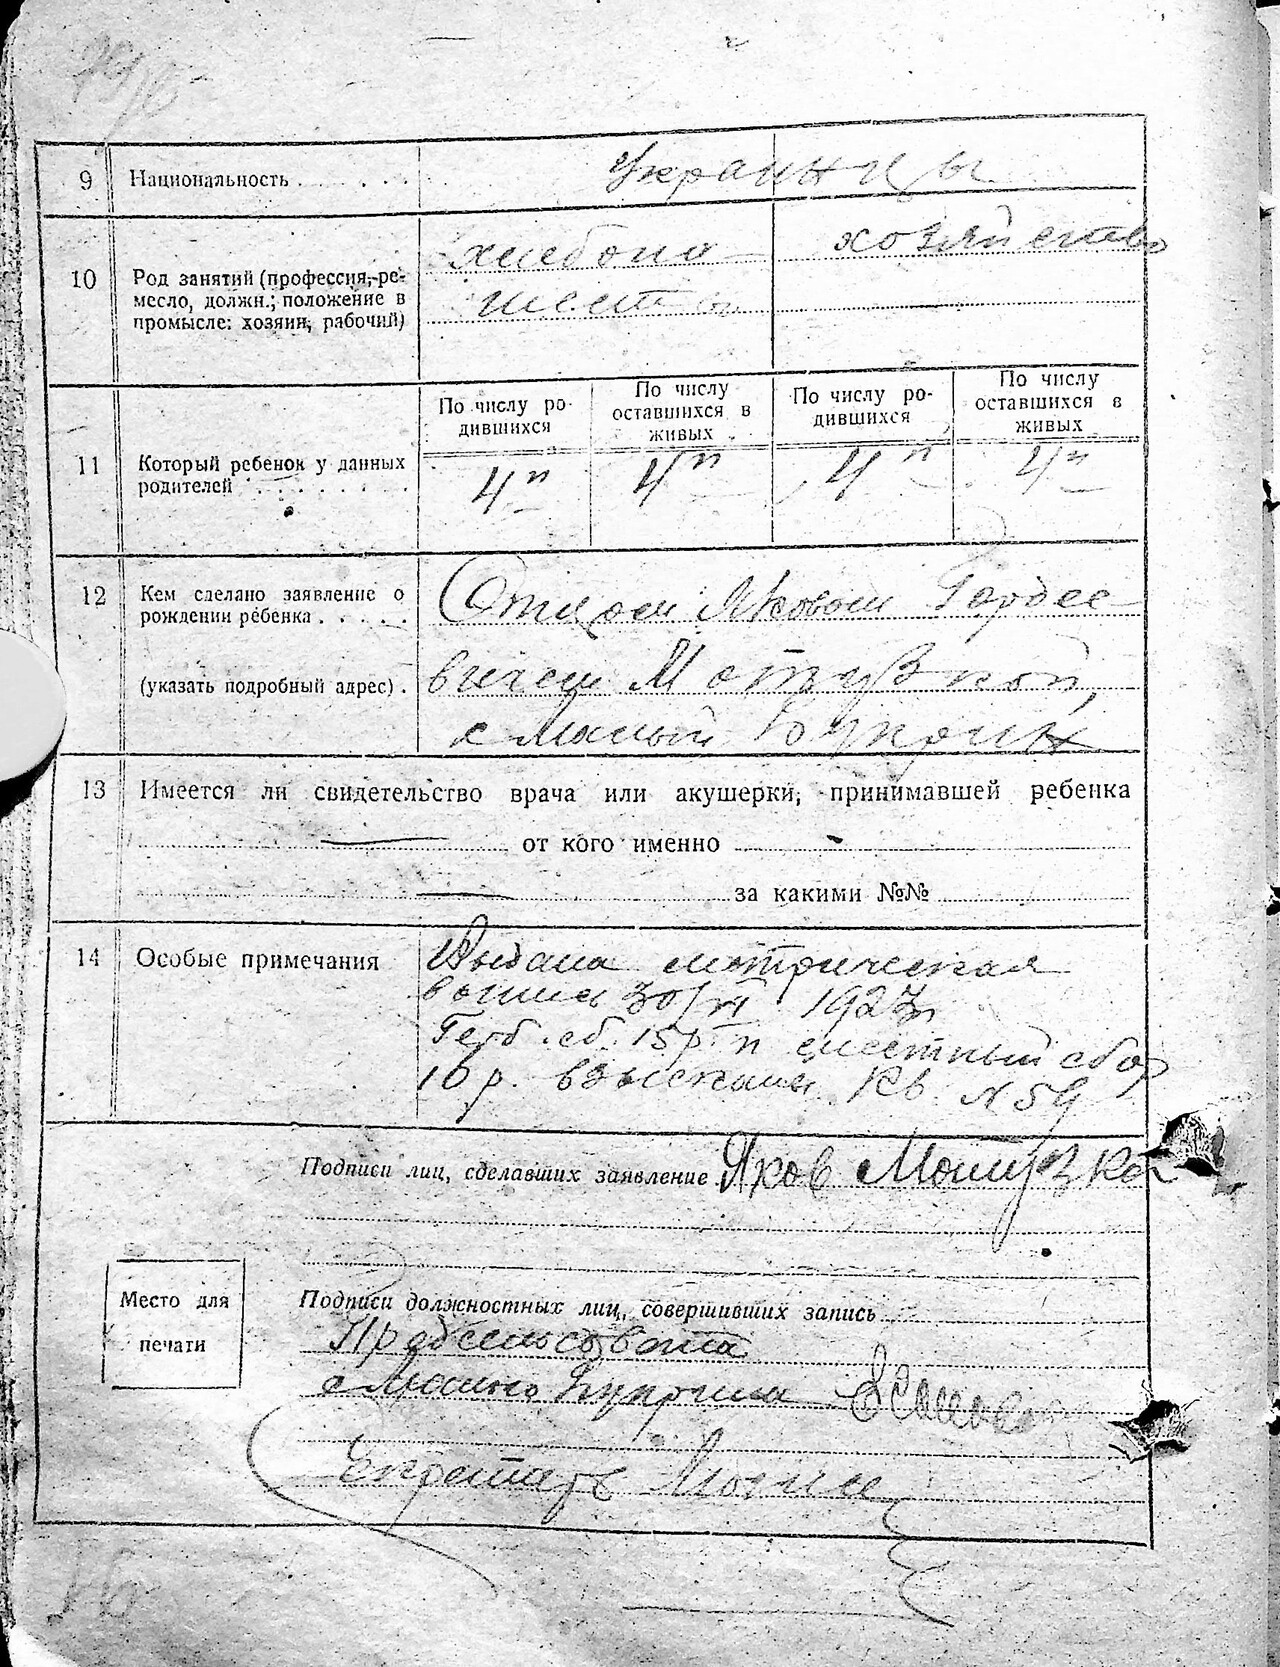 9 Национальность
украинцы
10 Род занятий (профессия, ре-
месло, должн.; положение в
промысле: хозяин, рабочий)
хлебопа-
шест
хозяйство
11 Который ребенок у данных
родителей
По числу ро-
дившихся
По числу
оставшихся в
живых
По числу ро-
дившихся
По числу
оставшихся в
живых
4й 4й 4й 4й
12 Кем сделано заявление о
рождении ребенка
(указать подробный адрес).
Отцом Яковом Гордее-
вичем Мотузкой,
с Малый Букрин
13 Имеется ли свидетельство врача или акушерки, принимавшей ребенка
от кого именно
за какими №№
14 Особые примечания
Выдана метрическая
выпись 30/VI 1927
Герб. сб. 15 р. и местный сбор
10 р. взысканы Кв N 59
Подписи лиц, сделавших заявление Яков Мотузка
Место для
печати
Подписи должностных лиц, совершивших запись
Предсельсовета
с Малого Букрина
Секретарь